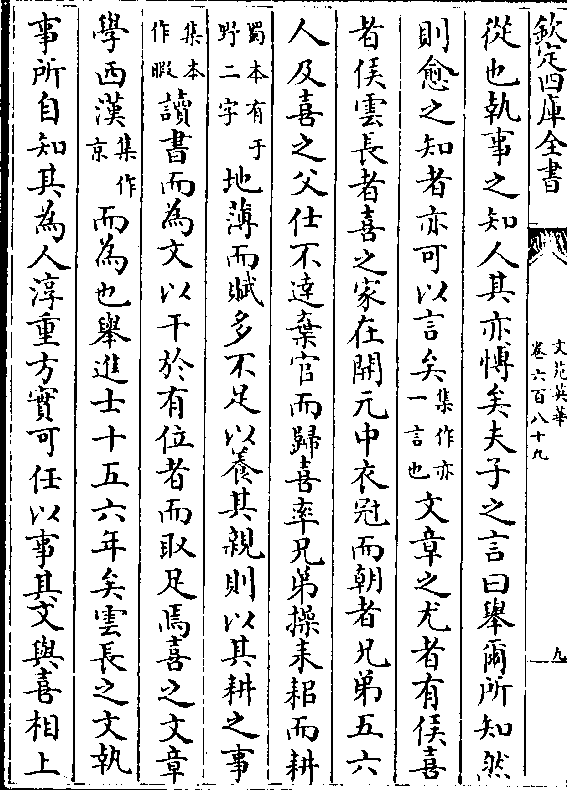 欽定四庫全書
文苑英華
卷六百八十九
九
從也執事之知人其亦博矣夫子之言曰舉爾所知然
則愈之知者亦可以言矣集作亦一言也文章之尤者有侯喜
者侯雲長者喜之家在開元中衣冠而朝者兄弟五六
人及喜之父仕不達棄官而歸喜率兄弟操耒耜而耕
蜀本有于野二字地薄而賦多不足以養其親則以其耕之事
集本作暇讀書而為文以干於有位者而取足焉喜之文章
學西漢集作京而為也舉進士十五六年矣雲長之文執
事所自知其為人淳重方實可任以事其文與喜相上